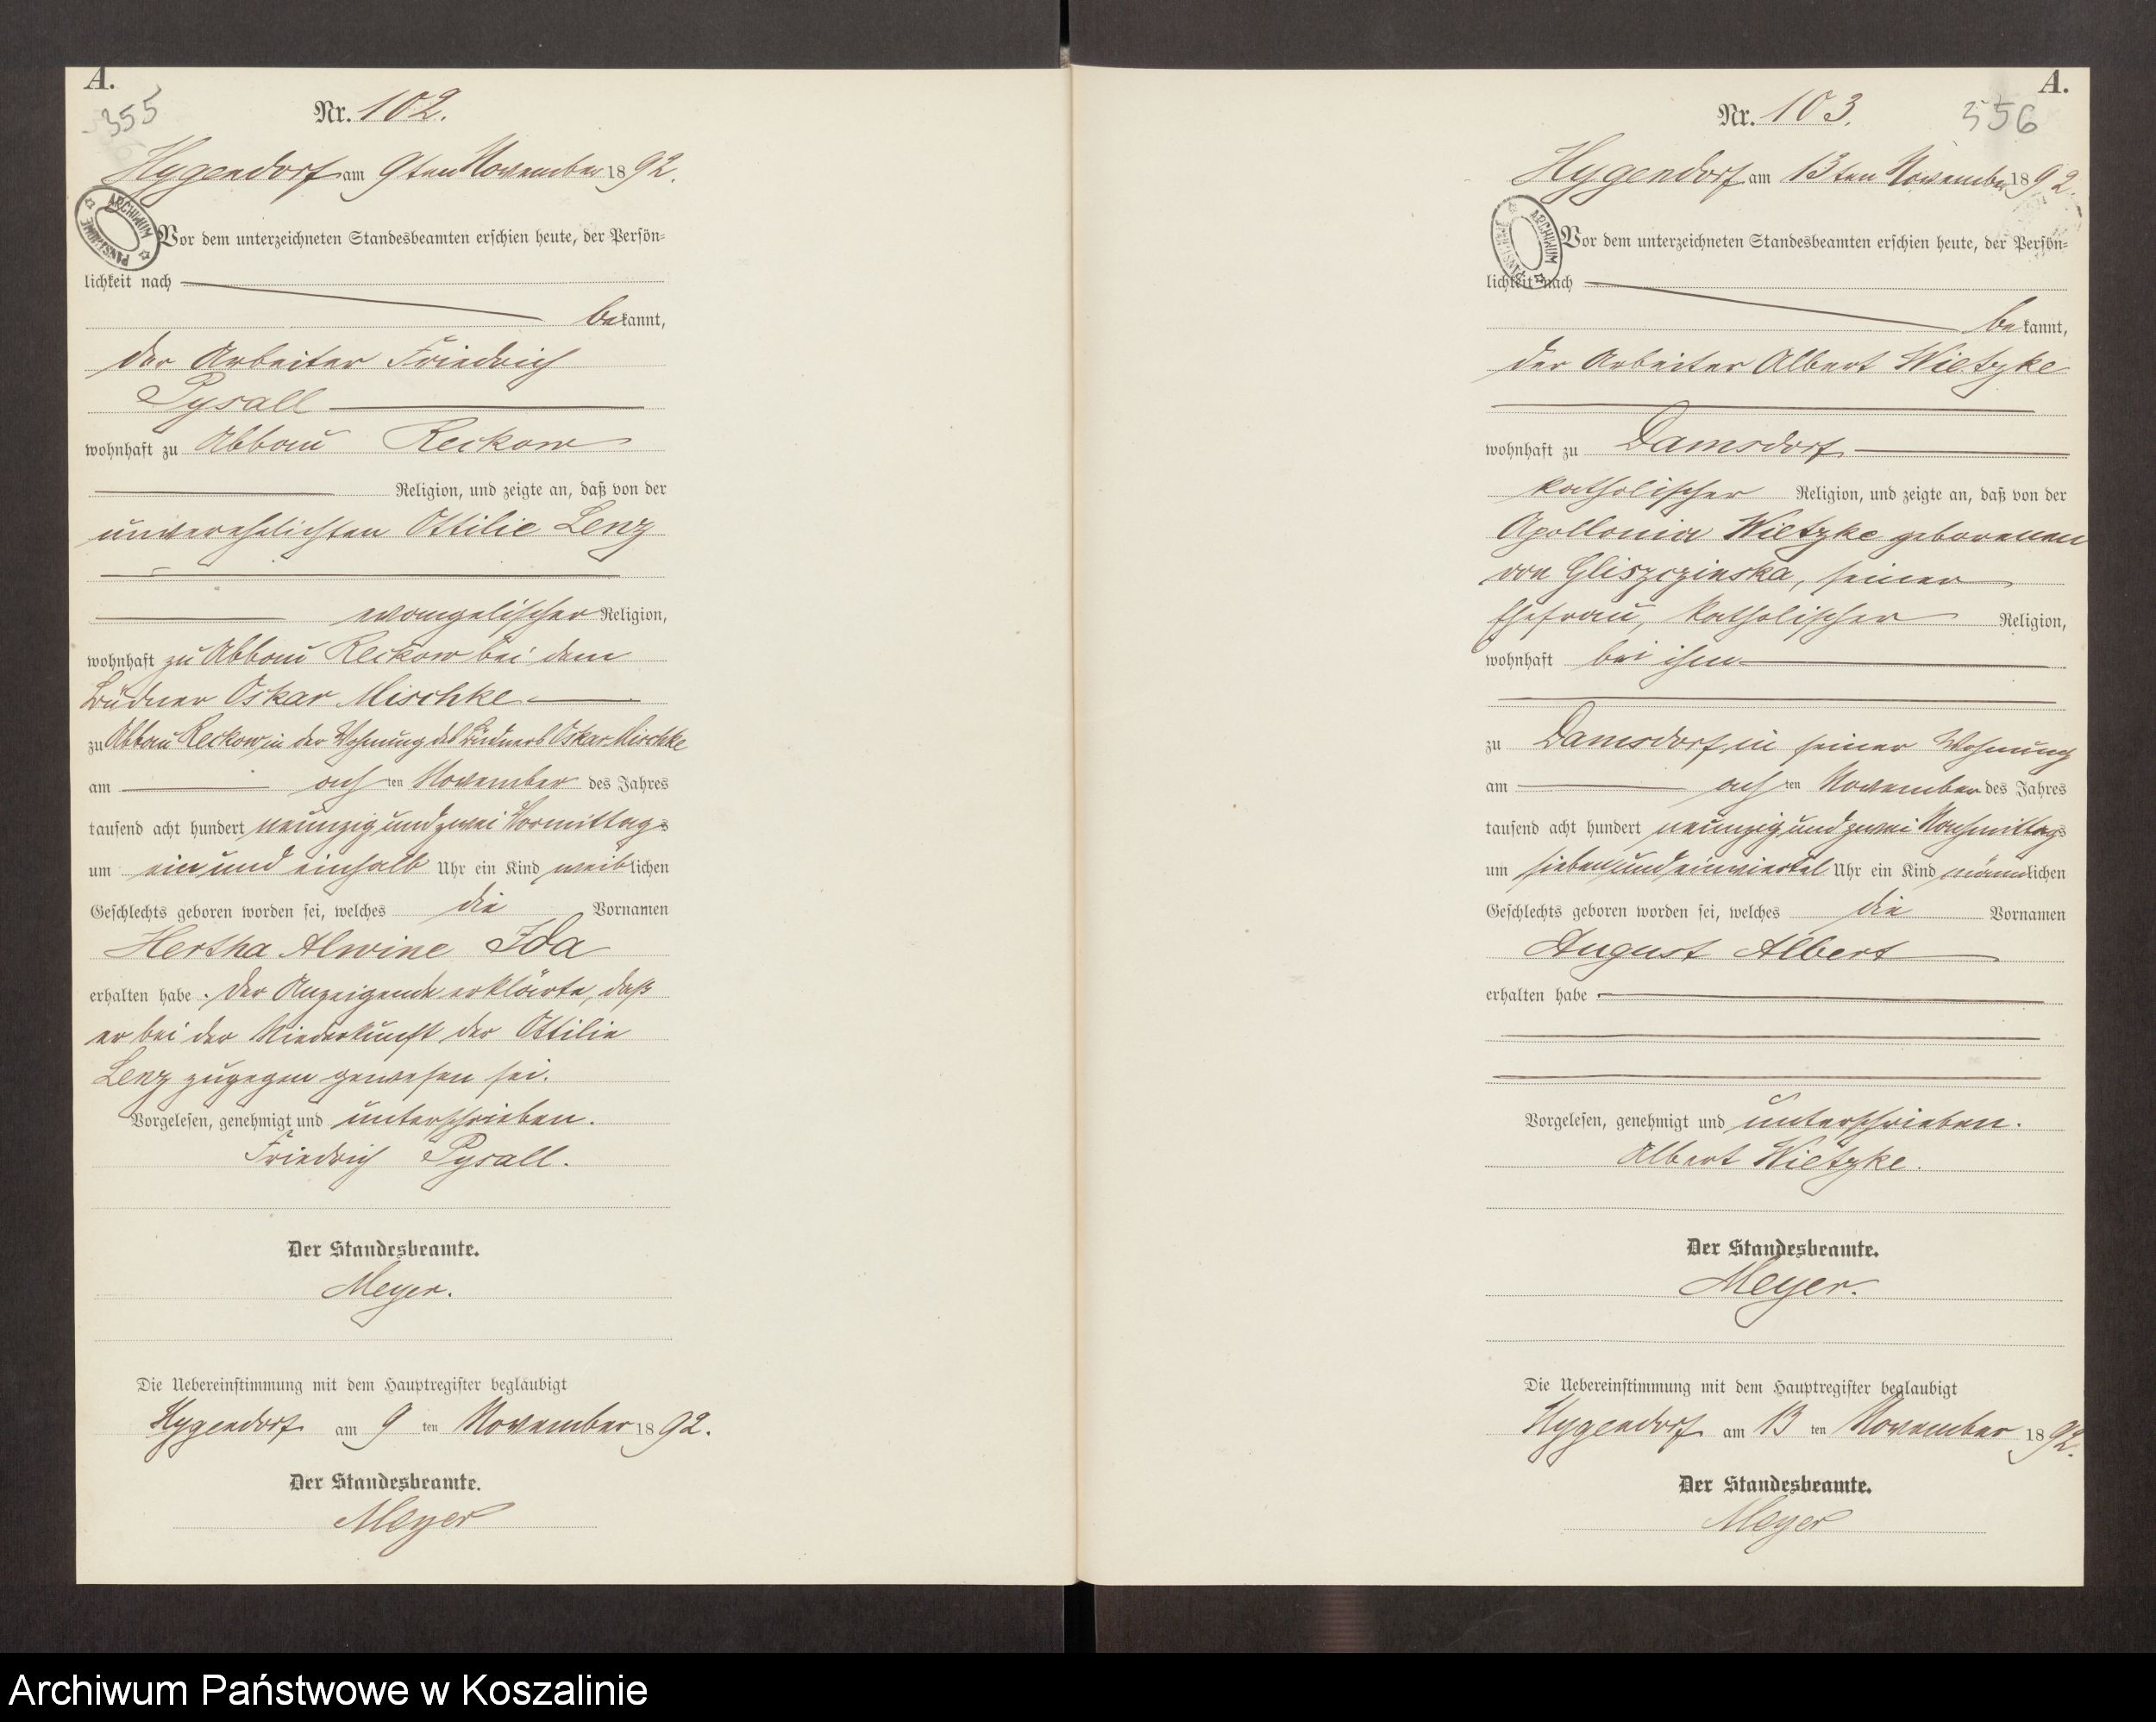 A.
355
Nr. 102.
Hygendorf am 9ten November 1892.
ARCHIWUM PAŃSTWOWE
Vor dem unterzeichneten Standesbeamten erschien heute, der Persön-
lichkeit nach
bekannt,
der Arbeiter Friedrich
Pysall
wohnhaft zu Abbau Reckow
Religion, und zeigte an, daß von der
unverehelichten Ottilie Lenz
evangelischer Religion,
wohnhaft zu Abbau Reckow bei dem
Büdner Oskar Mischke
zu Abbau Reckow in der Wohnung des Büdners Oskar Mischke
am achten November des Jahres
tausend acht hundert neunzig und zwei Vormittags
um ein und einhalb Uhr ein Kind weiblichen
Geschlechts geboren worden sei, welches die Vornamen
Hertha Alwine Ida
erhalten habe. Der Anzeigende erklärte, daß
er bei der Niederkunft der Ottilie
Lenz zugegen gewesen sei.
Vorgelesen, genehmigt und unterschrieben.
Friedrich Pysall.
Der Standesbeamte.
Meyer.
Die Uebereinstimmung mit dem Hauptregister beglaubigt
Hygendorf am 9ten November 1892.
Der Standesbeamte.
Meyer
A.
356
Nr. 103.
Hygendorf am 13ten November 1892.
ARCHIWUM PAŃSTWOWE
Vor dem unterzeichneten Standesbeamten erschien heute, der Persön-
lichkeit nach
bekannt,
der Arbeiter Albert Wietzke
wohnhaft zu Damsdorf
katholischer Religion, und zeigte an, daß von der
Apollonia Wietzke geborenen
von Gliszczinska, seiner
Ehefrau, katholischer Religion,
wohnhaft bei ihm
zu Damsdorf in seiner Wohnung
am achten November des Jahres
tausend acht hundert neunzig und zwei Nachmittags
um sieben und einviertel Uhr ein Kind männlichen
Geschlechts geboren worden sei, welches die Vornamen
August Albert
erhalten habe.
Vorgelesen, genehmigt und unterschrieben.
Albert Wietzke.
Der Standesbeamte.
Meyer.
Die Uebereinstimmung mit dem Hauptregister beglaubigt
Hygendorf am 13ten November 1892.
Der Standesbeamte.
Meyer
Archiwum Państwowe w Koszalinie